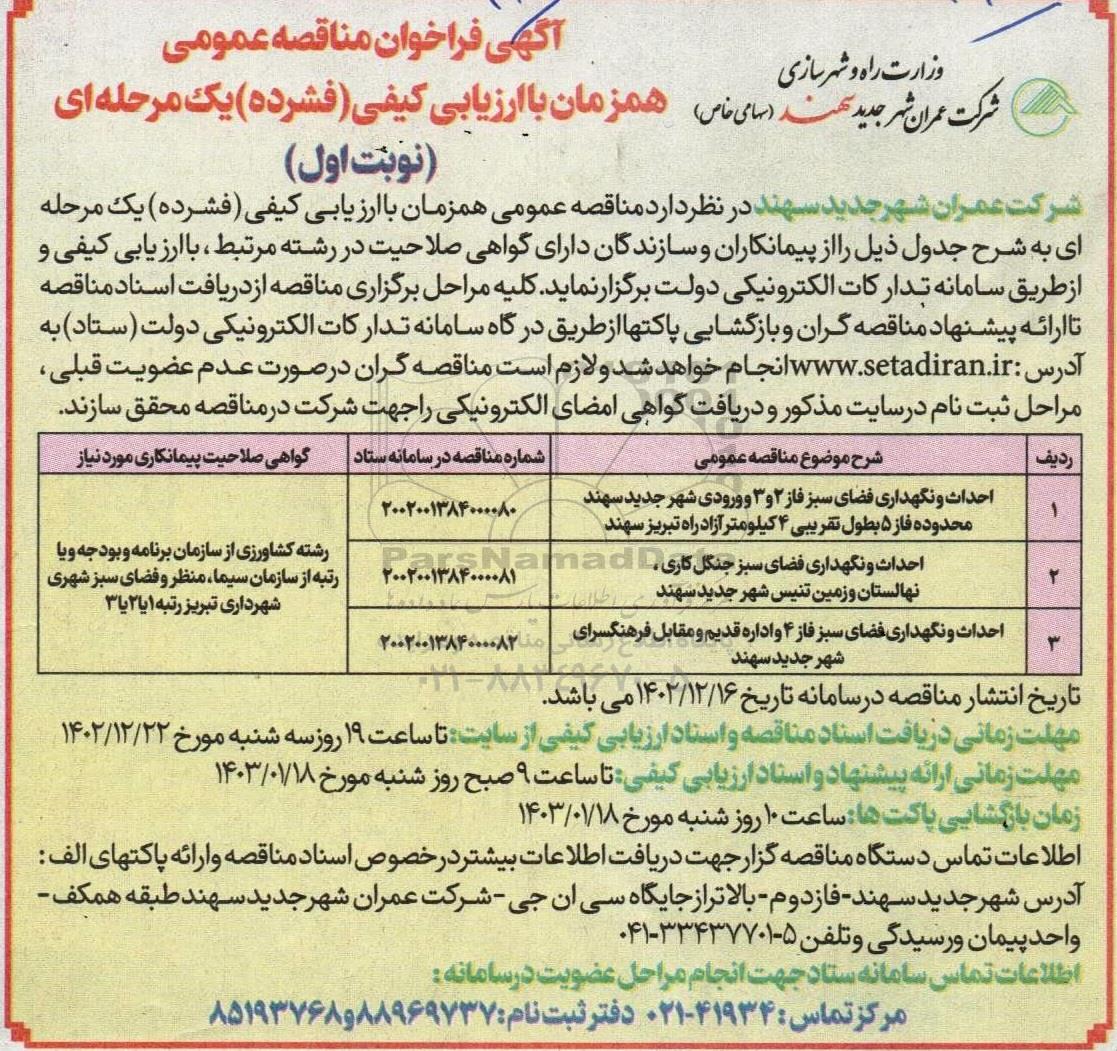 آگهی فراخوان مناقصه عمومی
همزمان با ارزیابی کیفی (فشرده) یک مرحله ای
(نوبت اول)
وزارت راه و شهرسازی
شرکت عمران شهر جدید سهند (سهامی خاص)
شرکت عمران شهر جدید سهند در نظر دارد مناقصه عمومی همزمان با ارزیابی کیفی (فشرده) یک مرحله
ای به شرح جدول ذیل را از پیمانکاران و سازندگان دارای گواهی صلاحیت در رشته مرتبط ، با ارزیابی کیفی و
از طریق سامانه تدارکات الکترونیکی دولت برگزار نماید. کلیه مراحل برگزاری مناقصه از دریافت اسناد مناقصه
تا ارائه پیشنهاد مناقصه گران و بازگشایی پاکتها از طریق درگاه سامانه تدارکات الکترونیکی دولت (ستاد) به
آدرس : www.setadiran.ir انجام خواهد شد و لازم است مناقصه گران در صورت عدم عضویت قبلی ،
مراحل ثبت نام در سایت مذکور و دریافت گواهی امضای الکترونیکی را جهت شرکت در مناقصه محقق سازند.
ردیف شرح موضوع مناقصه عمومی شماره مناقصه در سامانه ستاد گواهی صلاحیت پیمانکاری مورد نیاز
۱ احداث و نگهداری فضای سبز فاز ۲ و ۳ و ورودی شهر جدید سهند
محدوده فاز ۵ بطول تقریبی ۴ کیلومتر آزاد راه تبریز سهند
۲۰۰۲۰۰۱۳۸۴۰۰۰۰۸۰
۲ احداث و نگهداری فضای سبز جنگل کاری ،
نهالستان و زمین تنیس شهر جدید سهند
۲۰۰۲۰۰۱۳۸۴۰۰۰۰۸۱
۳ احداث و نگهداری فضای سبز فاز ۴ و اداره قدیم و مقابل فرهنگسرای
شهر جدید سهند
۲۰۰۲۰۰۱۳۸۴۰۰۰۰۸۲
رشته کشاورزی از سازمان برنامه و بودجه و یا
رتبه از سازمان سیما، منظر و فضای سبز شهری
شهرداری تبریز رتبه ۱ یا ۲ یا ۳
ParsNamadData
۰۲۱-۸۸۳۴۹۶۷۰-۵
تاریخ انتشار مناقصه در سامانه تاریخ ۱۴۰۲/۱۲/۱۶ می باشد.
مهلت زمانی دریافت اسناد مناقصه و اسناد ارزیابی کیفی از سایت: تا ساعت ۱۹ روز سه شنبه مورخ ۱۴۰۲/۱۲/۲۲
مهلت زمانی ارائه پیشنهاد و اسناد ارزیابی کیفی: تا ساعت ۹ صبح روز شنبه مورخ ۱۴۰۳/۰۱/۱۸
زمان بازگشایی پاکت ها: ساعت ۱۰ روز شنبه مورخ ۱۴۰۳/۰۱/۱۸
اطلاعات تماس دستگاه مناقصه گزار جهت دریافت اطلاعات بیشتر در خصوص اسناد مناقصه و ارائه پاکتهای الف :
آدرس شهر جدید سهند-فاز دوم-بالاتر از جایگاه سی ان جی-شرکت عمران شهر جدید سهند طبقه همکف-
واحد پیمان و رسیدگی و تلفن ۵-۳۳۴۳۷۷۰۱-۰۴۱
اطلاعات تماس سامانه ستاد جهت انجام مراحل عضویت در سامانه :
مرکز تماس : ۴۱۹۳۴-۰۲۱ دفتر ثبت نام : ۸۸۹۶۹۷۳۷ و ۸۵۱۹۳۷۶۸